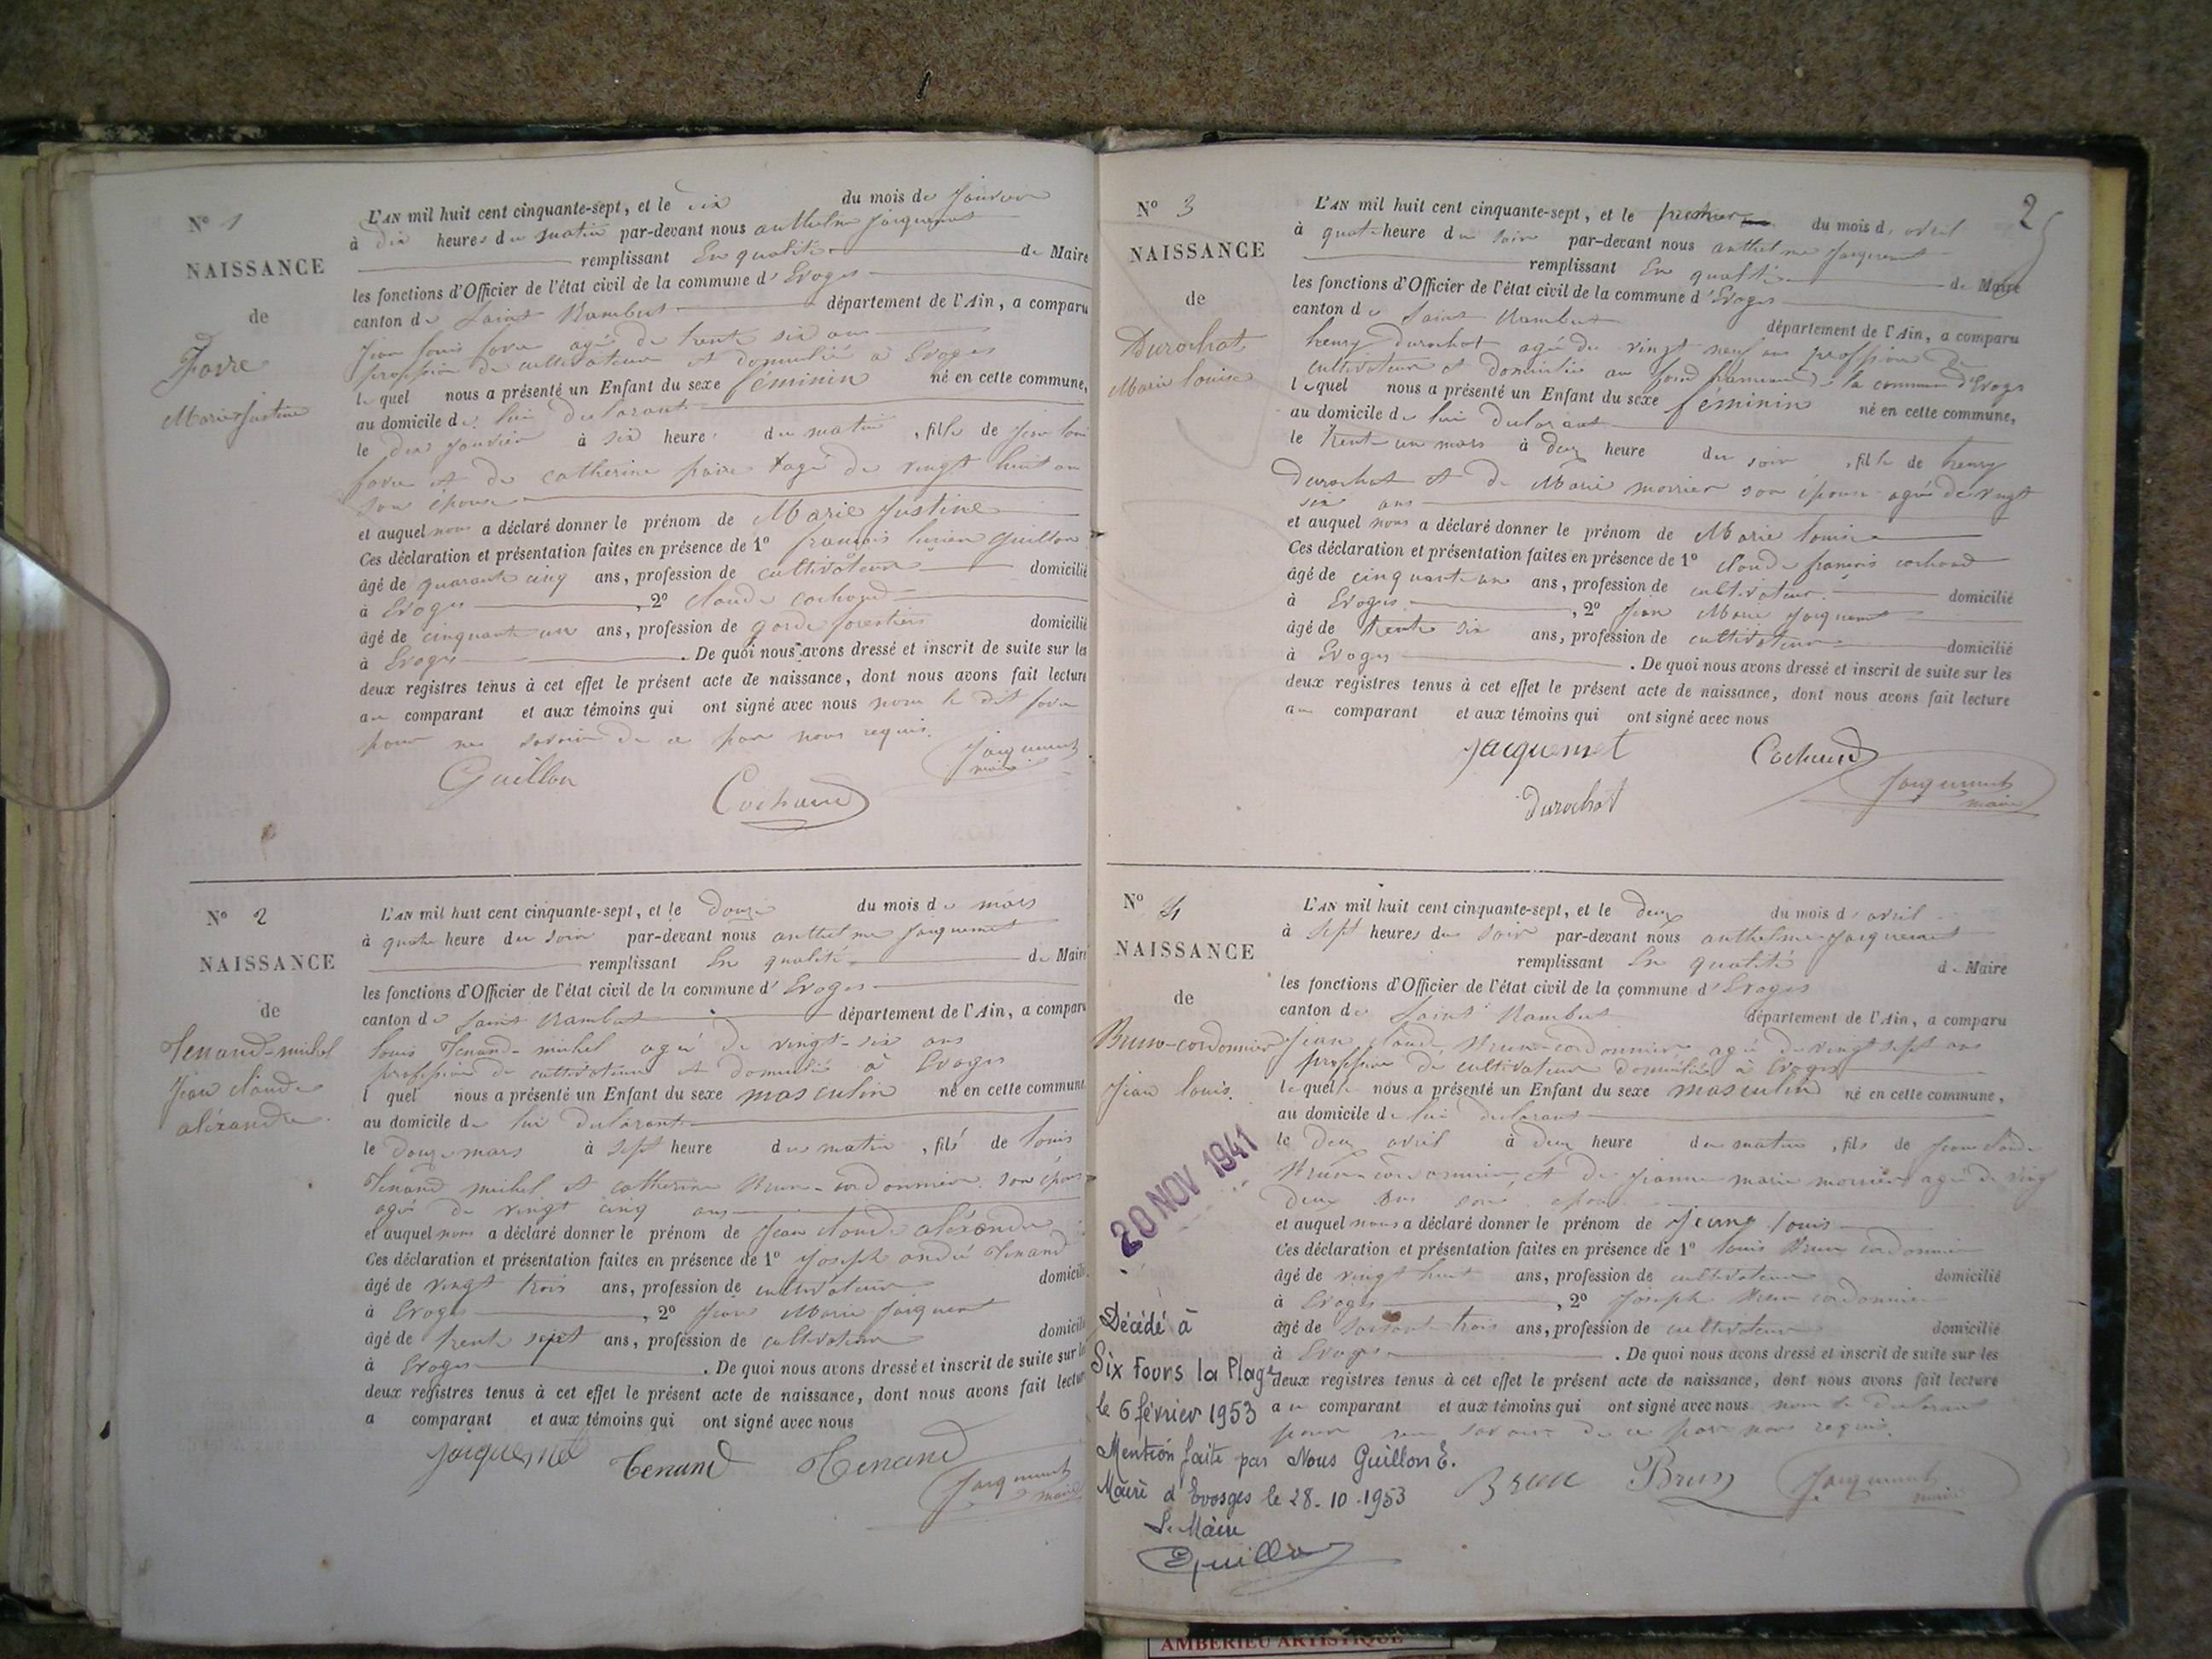 N° 1
NAISSANCE
de
Favre
Marie Justine
L'AN mil huit cent cinquante-sept, et le dix du mois de Janvier
à dix heures du matin par-devant nous anthelme Jacquemet
remplissant En qualité de Maire
les fonctions d'Officier de l'état civil de la commune d'Evoges
canton de Saint Rambert département de l'Ain, a comparu
Jean Louis favre agé de trente six ans
profession de cultivateur et domicilié à Evoges
lequel nous a présenté un Enfant du sexe féminin né en cette commune,
au domicile de lui déclarant
le dix Janvier à six heure du matin, fille de Jean Louis
favre et de catherine agé de vingt huit ans
son épouse
et auquel nous a déclaré donner le prénom de Marie Justine
Ces déclaration et présentation faites en présence de 1° françois Guillon
âgé de quarante cinq ans, profession de cultivateur domicilié
à Evoges, 2° claude cochard
âgé de cinquante un ans, profession de garde forestier domicilié
à Evoges. De quoi nous avons dressé et inscrit de suite sur les
deux registres tenus à cet effet le présent acte de naissance, dont nous avons fait lecture
au comparant et aux témoins qui ont signé avec nous non le dit favre
pour ne savoir de ce par nous requis.
Guillon Cochard Jacquemet maire
N° 2
NAISSANCE
de
Tenand-michel
Jean claude
aléxandre
L'AN mil huit cent cinquante-sept, et le douze du mois de mars
à quatre heure du soir par-devant nous anthelme Jacquemet
remplissant En qualité de Maire
les fonctions d'Officier de l'état civil de la commune d'Evoges
canton de Saint Rambert département de l'Ain, a comparu
Louis Tenand-michel agé de vingt-six ans
profession de cultivateur et domicilié à Evoges
lequel nous a présenté un Enfant du sexe masculin né en cette commune
au domicile de lui déclarant
le douze mars à sept heure du matin, fils de Louis
Tenand michel et catherine Brun-cordonnier son épouse
agée de vingt cinq ans
et auquel nous a déclaré donner le prénom de Jean claude aléxandre
Ces déclaration et présentation faites en présence de 1° Joseph andré Tenand
âgé de vingt trois ans, profession de cultivateur domicilié
à Evoges, 2° Jean Marie Jacquemet
âgé de trente sept ans, profession de cultivateur domicilié
à Evoges. De quoi nous avons dressé et inscrit de suite sur les
deux registres tenus à cet effet le présent acte de naissance, dont nous avons fait lecture
a comparant et aux témoins qui ont signé avec nous
Jacquemet Tenand Tenand Jacquemet maire
2
N° 3
NAISSANCE
de
Durochat
Marie louise
L'AN mil huit cent cinquante-sept, et le premier du mois d'avril
à quatre heure du soir par-devant nous anthelme Jacquemet
remplissant En qualité de Maire
les fonctions d'Officier de l'état civil de la commune d'Evoges
canton de Saint Rambert département de l'Ain, a comparu
henry Durochat agé de vingt neuf ans profession de
cultivateur et domicilié au hameau de la commune d'Evoges
lequel nous a présenté un Enfant du sexe féminin né en cette commune,
au domicile de lui déclarant
le trente un mars à deux heure du soir, fille de henry
Durochat et de Marie morrier son épouse agée de vingt
six ans
et auquel nous a déclaré donner le prénom de Marie louise
Ces déclaration et présentation faites en présence de 1° claude françois cochard
âgé de cinquante un ans, profession de cultivateur domicilié
à Evoges, 2° Jean Marie Jacquemet
âgé de trente six ans, profession de cultivateur domicilié
à Evoges. De quoi nous avons dressé et inscrit de suite sur les
deux registres tenus à cet effet le présent acte de naissance, dont nous avons fait lecture
au comparant et aux témoins qui ont signé avec nous
Jacquemet Cochard
Durochat Jacquemet maire
N° 4
NAISSANCE
de
Brun-cordonnier
Jean louis.
L'AN mil huit cent cinquante-sept, et le deux du mois d'avril
à sept heures du soir par-devant nous anthelme Jacquemet
remplissant En qualité de Maire
les fonctions d'Officier de l'état civil de la commune d'Evoges
canton de Saint Rambert département de l'Ain, a comparu
Jean claude Brun-cordonnier agé de vingt sept ans
profession de cultivateur domicilié à Evoges
lequel nous a présenté un Enfant du sexe masculin né en cette commune,
au domicile de lui déclarant
le deux avril à deux heure du matin, fils de Jean claude
Brun-cordonnier, et de Jeanne marie morrier agée de vingt
deux ans son épouse
et auquel nous a déclaré donner le prénom de Jean louis
Ces déclaration et présentation faites en présence de 1° louis Brun cordonnier
âgé de vingt huit ans, profession de cultivateur domicilié
à Evoges, 2° Joseph Brun cordonnier
âgé de soixante trois ans, profession de cultivateur domicilié
à Evoges. De quoi nous avons dressé et inscrit de suite sur les
deux registres tenus à cet effet le présent acte de naissance, dont nous avons fait lecture
au comparant et aux témoins qui ont signé avec nous non le déclarant
pour ne savoir de ce par nous requis.
Brun Brun Jacquemet maire
20 NOV 1941
Décédé à
Six Fours la Plage
le 6 février 1953
Mention faite par Nous Guillon E.
Maire d'Evosges le 28-10-1953
Le Maire
Guillon
AMBERIEU ARTISTIQUE